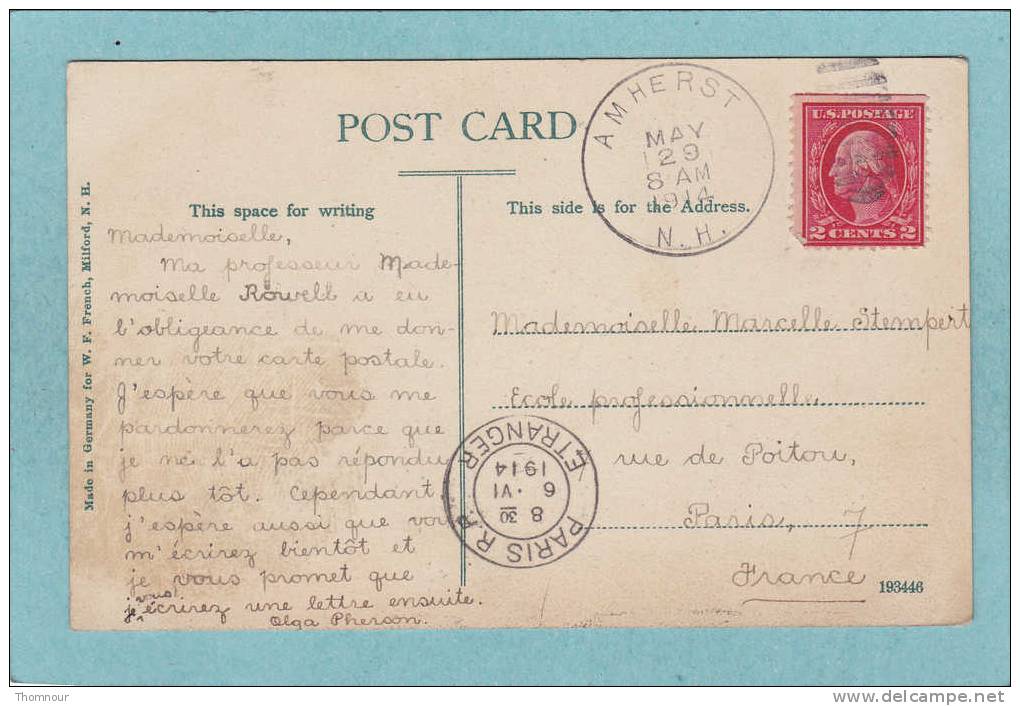 POST CARD
This space for writing
This side is for the Address.
AMHERST
MAY
29
8 AM
1914
N. H.
U.S. POSTAGE
2 CENTS 2
Made in Germany for W. F. French, Milford, N. H.
Mademoiselle,
Ma professeur Made-
moiselle Rowell a eu
l'obligeance de me don-
ner votre carte postale.
J'espère que vous me
pardonnerez parce que
je ne l'a pas répondu
plus tôt. Cependant,
j'espère aussi que vou
m'écrirez bientôt et
je vous promet que
vous
j'écrirez une lettre ensuite.
Olga Pherson.
Mademoiselle Marcelle Stempert
Ecole professionnelle
rue de Poitou,
Paris, 7
France
PARIS R.P. ETRANGER
8 30
6 · VI
1914
193446
Thomnour
http://www.delcampe.net